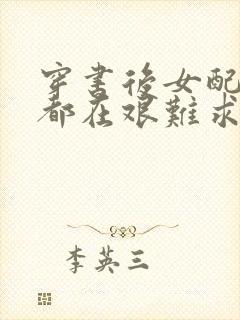 穿書後女配
都在艱難求
李英三